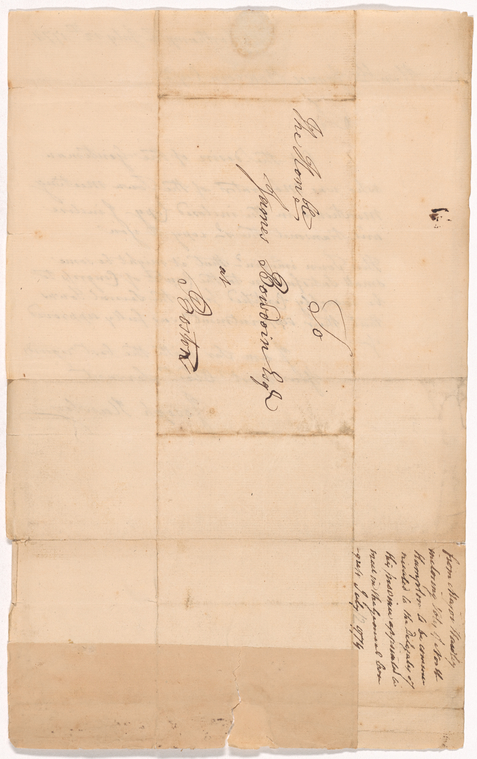 To
The Honble
James Bowdoin Esqr
at
Boston
from Major Hawley
inclosing Vote of North
Hampton to be commu-
nicated to the Delegates of
this province appointed to
meet in the General Con-
-gress July 1774